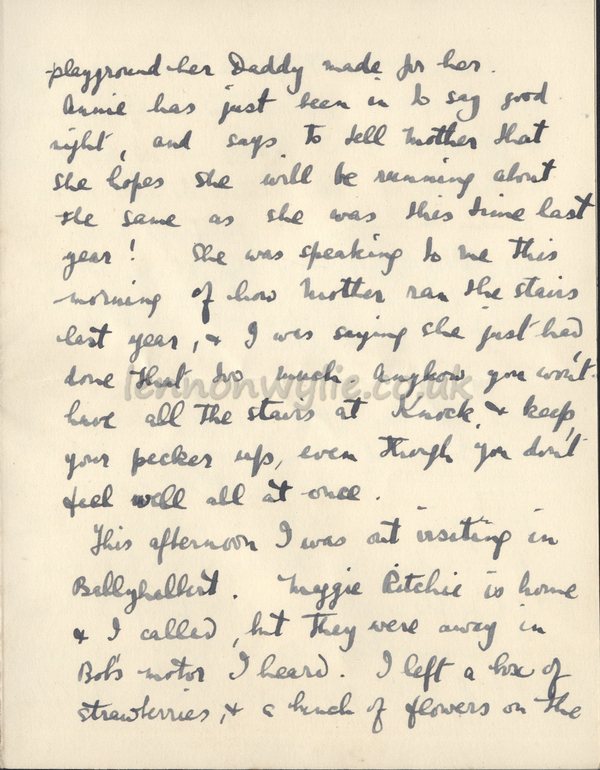 playground her Daddy made for her.
Annie has just been in to say good
night, and says to tell Mother that
she hopes she will be running about
the same as she was this time last
year! She was speaking to me this
morning of how Mother ran the stairs
last year, & I was saying she just had
done that too much. Anyhow you won't
have all the stairs at Knock, & keep
your pecker up, even though you don't
feel well all at once.
This afternoon I was out visiting in
Ballyhalbert. Maggie Ritchie is home
& I called, but they were away in
Bob's motor I heard. I left a box of
strawberries, & a bunch of flowers on the
lennonwylie.co.uk